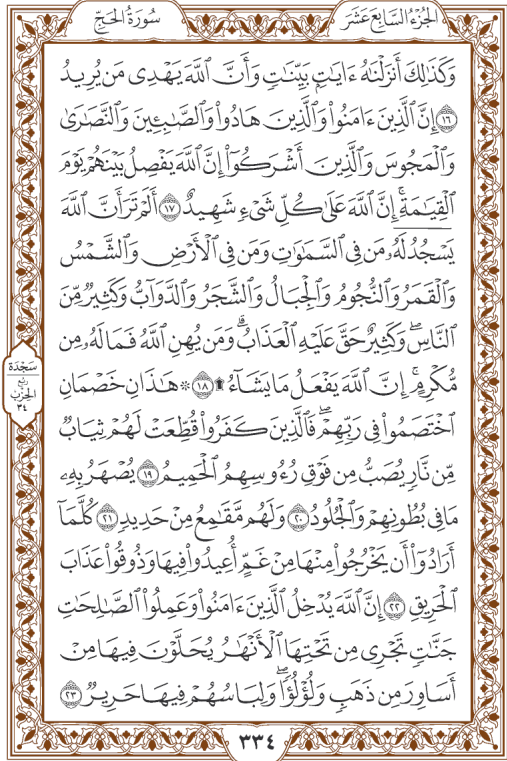 سُورَةُ الحَجِّ
الجُزْءُ السَّابِعَ عَشَرَ
وَكَذَٰلِكَ أَنزَلْنَٰهُ ءَايَٰتِۭ بَيِّنَٰتٖ وَأَنَّ ٱللَّهَ يَهْدِي مَن يُرِيدُ
١٦ إِنَّ ٱلَّذِينَ ءَامَنُواْ وَٱلَّذِينَ هَادُواْ وَٱلصَّٰبِـِٔينَ وَٱلنَّصَٰرَىٰ
وَٱلْمَجُوسَ وَٱلَّذِينَ أَشْرَكُوٓاْ إِنَّ ٱللَّهَ يَفْصِلُ بَيْنَهُمْ يَوْمَ
ٱلْقِيَٰمَةِۚ إِنَّ ٱللَّهَ عَلَىٰ كُلِّ شَيْءٖ شَهِيدٌ ١٧ أَلَمْ تَرَ أَنَّ ٱللَّهَ
يَسْجُدُ لَهُۥ مَن فِي ٱلسَّمَٰوَٰتِ وَمَن فِي ٱلْأَرْضِ وَٱلشَّمْسُ
وَٱلْقَمَرُ وَٱلنُّجُومُ وَٱلْجِبَالُ وَٱلشَّجَرُ وَٱلدَّوَآبُّ وَكَثِيرٞ مِّنَ
ٱلنَّاسِۖ وَكَثِيرٌ حَقَّ عَلَيْهِ ٱلْعَذَابُۗ وَمَن يُهِنِ ٱللَّهُ فَمَا لَهُۥ مِن
مُّكْرِمٍۚ إِنَّ ٱللَّهَ يَفْعَلُ مَا يَشَآءُ ۩ ١٨ ۞ هَٰذَانِ خَصْمَانِ
ٱخْتَصَمُواْ فِي رَبِّهِمْۖ فَٱلَّذِينَ كَفَرُواْ قُطِّعَتْ لَهُمْ ثِيَابٞ
مِّن نَّارٖ يُصَبُّ مِن فَوْقِ رُءُوسِهِمُ ٱلْحَمِيمُ ١٩ يُصْهَرُ بِهِۦ
مَا فِي بُطُونِهِمْ وَٱلْجُلُودُ ٢٠ وَلَهُم مَّقَٰمِعُ مِنْ حَدِيدٖ ٢١ كُلَّمَآ
أَرَادُوٓاْ أَن يَخْرُجُواْ مِنْهَا مِنْ غَمٍّ أُعِيدُواْ فِيهَا وَذُوقُواْ عَذَابَ
ٱلْحَرِيقِ ٢٢ إِنَّ ٱللَّهَ يُدْخِلُ ٱلَّذِينَ ءَامَنُواْ وَعَمِلُواْ ٱلصَّٰلِحَٰتِ
جَنَّٰتٖ تَجْرِي مِن تَحْتِهَا ٱلْأَنْهَٰرُ يُحَلَّوْنَ فِيهَا مِنْ
أَسَاوِرَ مِن ذَهَبٖ وَلُؤْلُؤٗاۖ وَلِبَاسُهُمْ فِيهَا حَرِيرٞ ٢٣
سَجْدَة
رُبع
الحِزْب
٣٤
٣٣٤